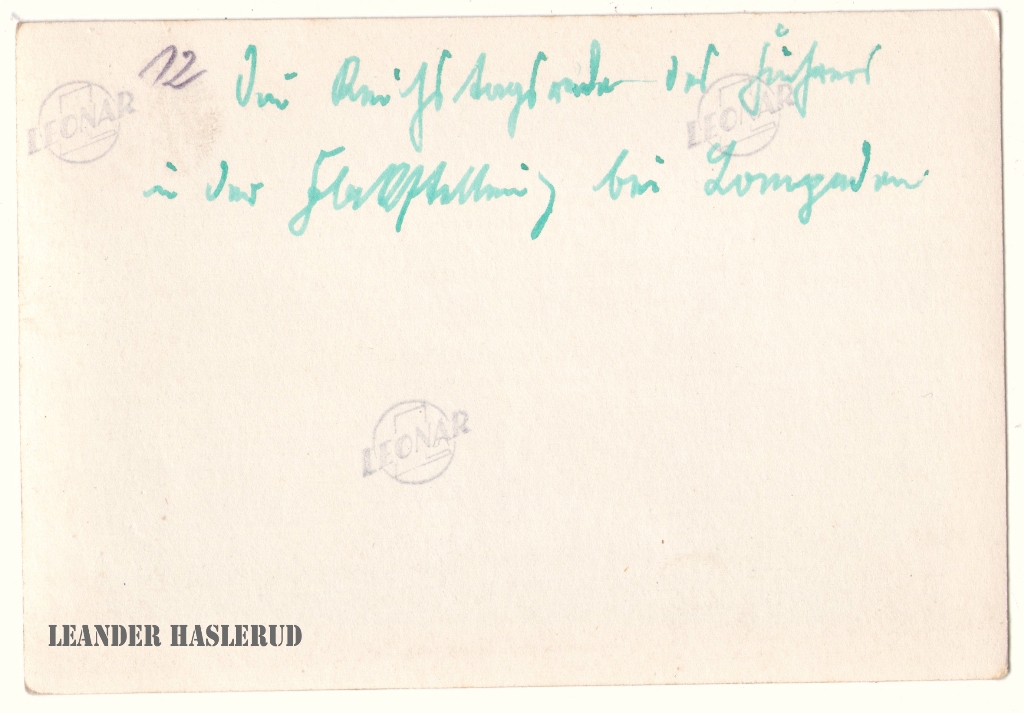 12 Die Reichstagsrede des Führers
in der Flakstellung bei Lompaden
LEONAR
LEONAR
LEONAR
LEANDER HASLERUD